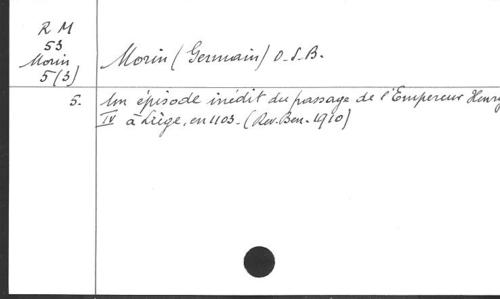 R M
53
Morin
5(3)
Morin (Germain) O.S.B.
5. Un épisode inédit du passage de l'Empereur Henry
IV à Liège, en 1103. (Rev. Ben. 1910)